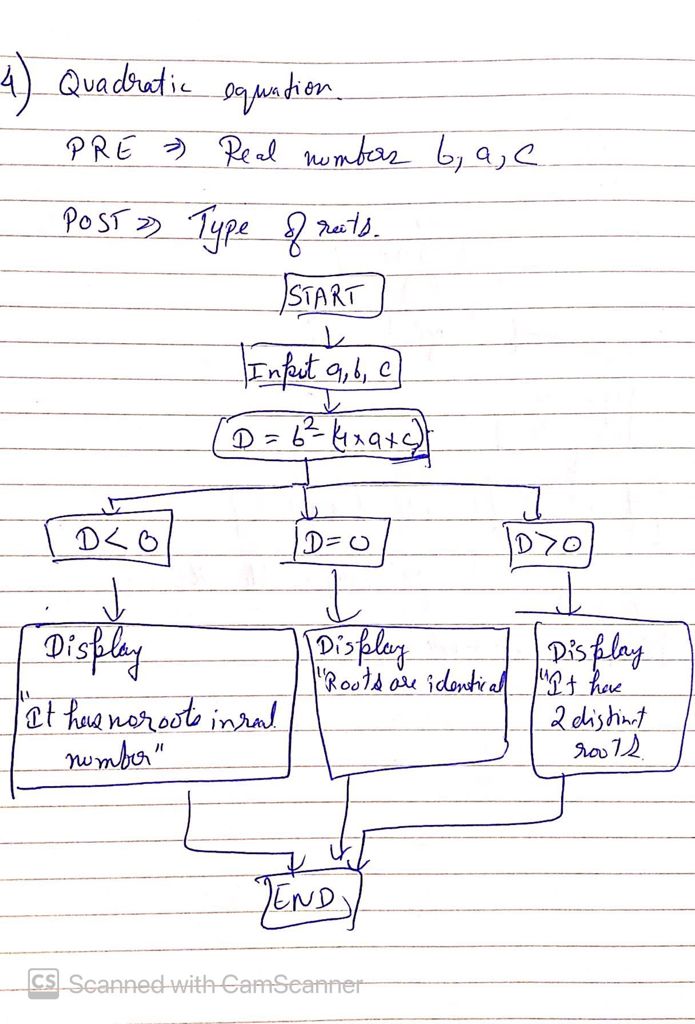 4) Quadratic equation.
PRE ⇒ Real numbers b, a, c
POST ⇒ Type of roots.
START
Input a, b, c
D = b² - (4×a×c)
D < 0
D = 0
D > 0
Display
"It has no roots in real
number"
Display
"Roots are identical
Display
"It have
2 distinct
roots.
END
CS Scanned with CamScanner